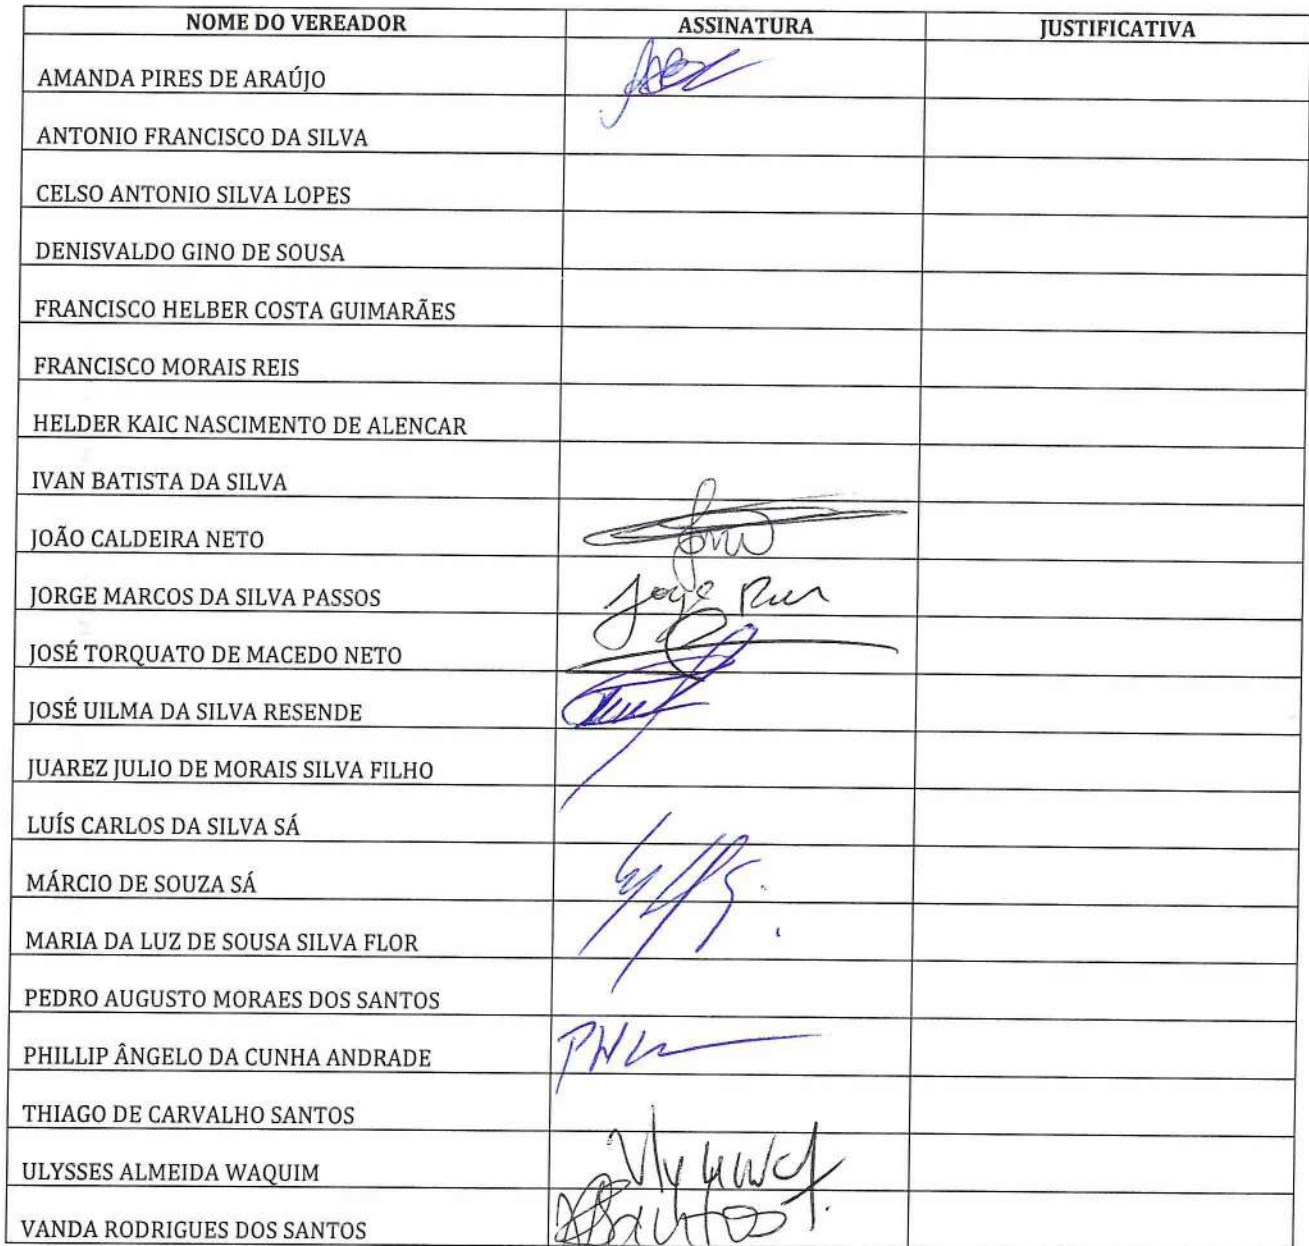 NOME DO VEREADOR ASSINATURA JUSTIFICATIVA
AMANDA PIRES DE ARAÚJO
ANTONIO FRANCISCO DA SILVA
CELSO ANTONIO SILVA LOPES
DENISVALDO GINO DE SOUSA
FRANCISCO HELBER COSTA GUIMARÃES
FRANCISCO MORAIS REIS
HELDER KAIC NASCIMENTO DE ALENCAR
IVAN BATISTA DA SILVA
JOÃO CALDEIRA NETO
JORGE MARCOS DA SILVA PASSOS Jorge
JOSÉ TORQUATO DE MACEDO NETO
JOSÉ UILMA DA SILVA RESENDE
JUAREZ JULIO DE MORAIS SILVA FILHO
LUÍS CARLOS DA SILVA SÁ
MÁRCIO DE SOUZA SÁ
MARIA DA LUZ DE SOUSA SILVA FLOR
PEDRO AUGUSTO MORAES DOS SANTOS
PHILLIP ÂNGELO DA CUNHA ANDRADE
THIAGO DE CARVALHO SANTOS
ULYSSES ALMEIDA WAQUIM
VANDA RODRIGUES DOS SANTOS Santos